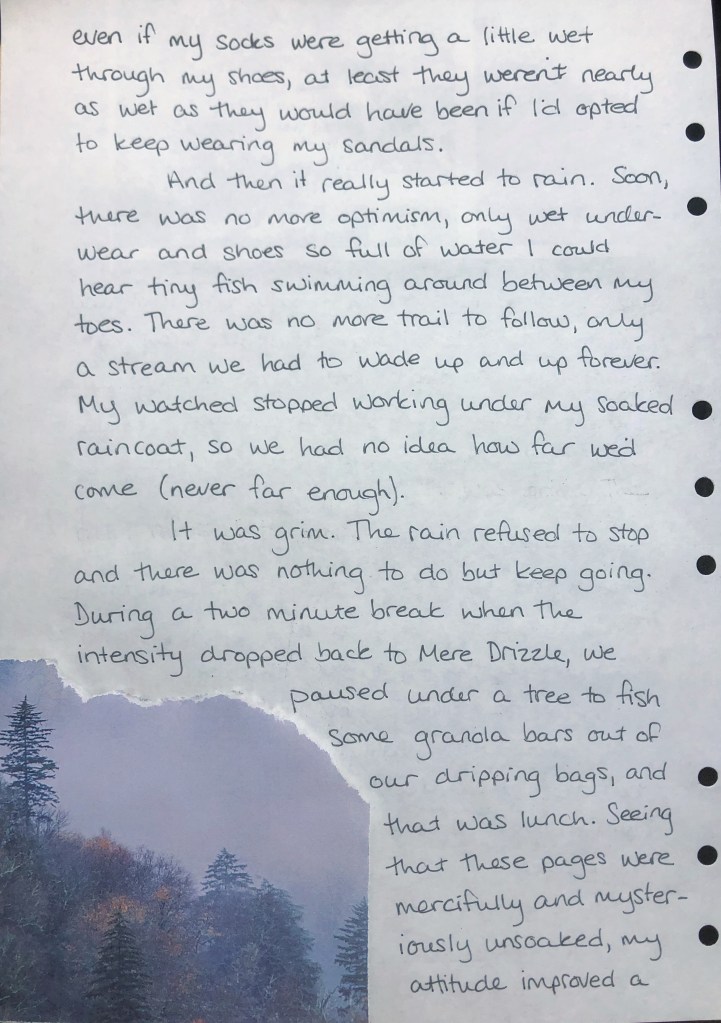 even if my socks were getting a little wet
through my shoes, at least they weren't nearly
as wet as they would have been if I'd opted
to keep wearing my sandals.
And then it really started to rain. Soon,
there was no more optimism, only wet under-
wear and shoes so full of water I could
hear tiny fish swimming around between my
toes. There was no more trail to follow, only
a stream we had to wade up and up forever.
My watched stopped working under my soaked
raincoat, so we had no idea how far we'd
come (never far enough).
It was grim. The rain refused to stop
and there was nothing to do but keep going.
During a two minute break when the
intensity dropped back to Mere Drizzle, we
paused under a tree to fish
some granola bars out of
our dripping bags, and
that was lunch. Seeing
that these pages were
mercifully and myster-
iously unsoaked, my
attitude improved a